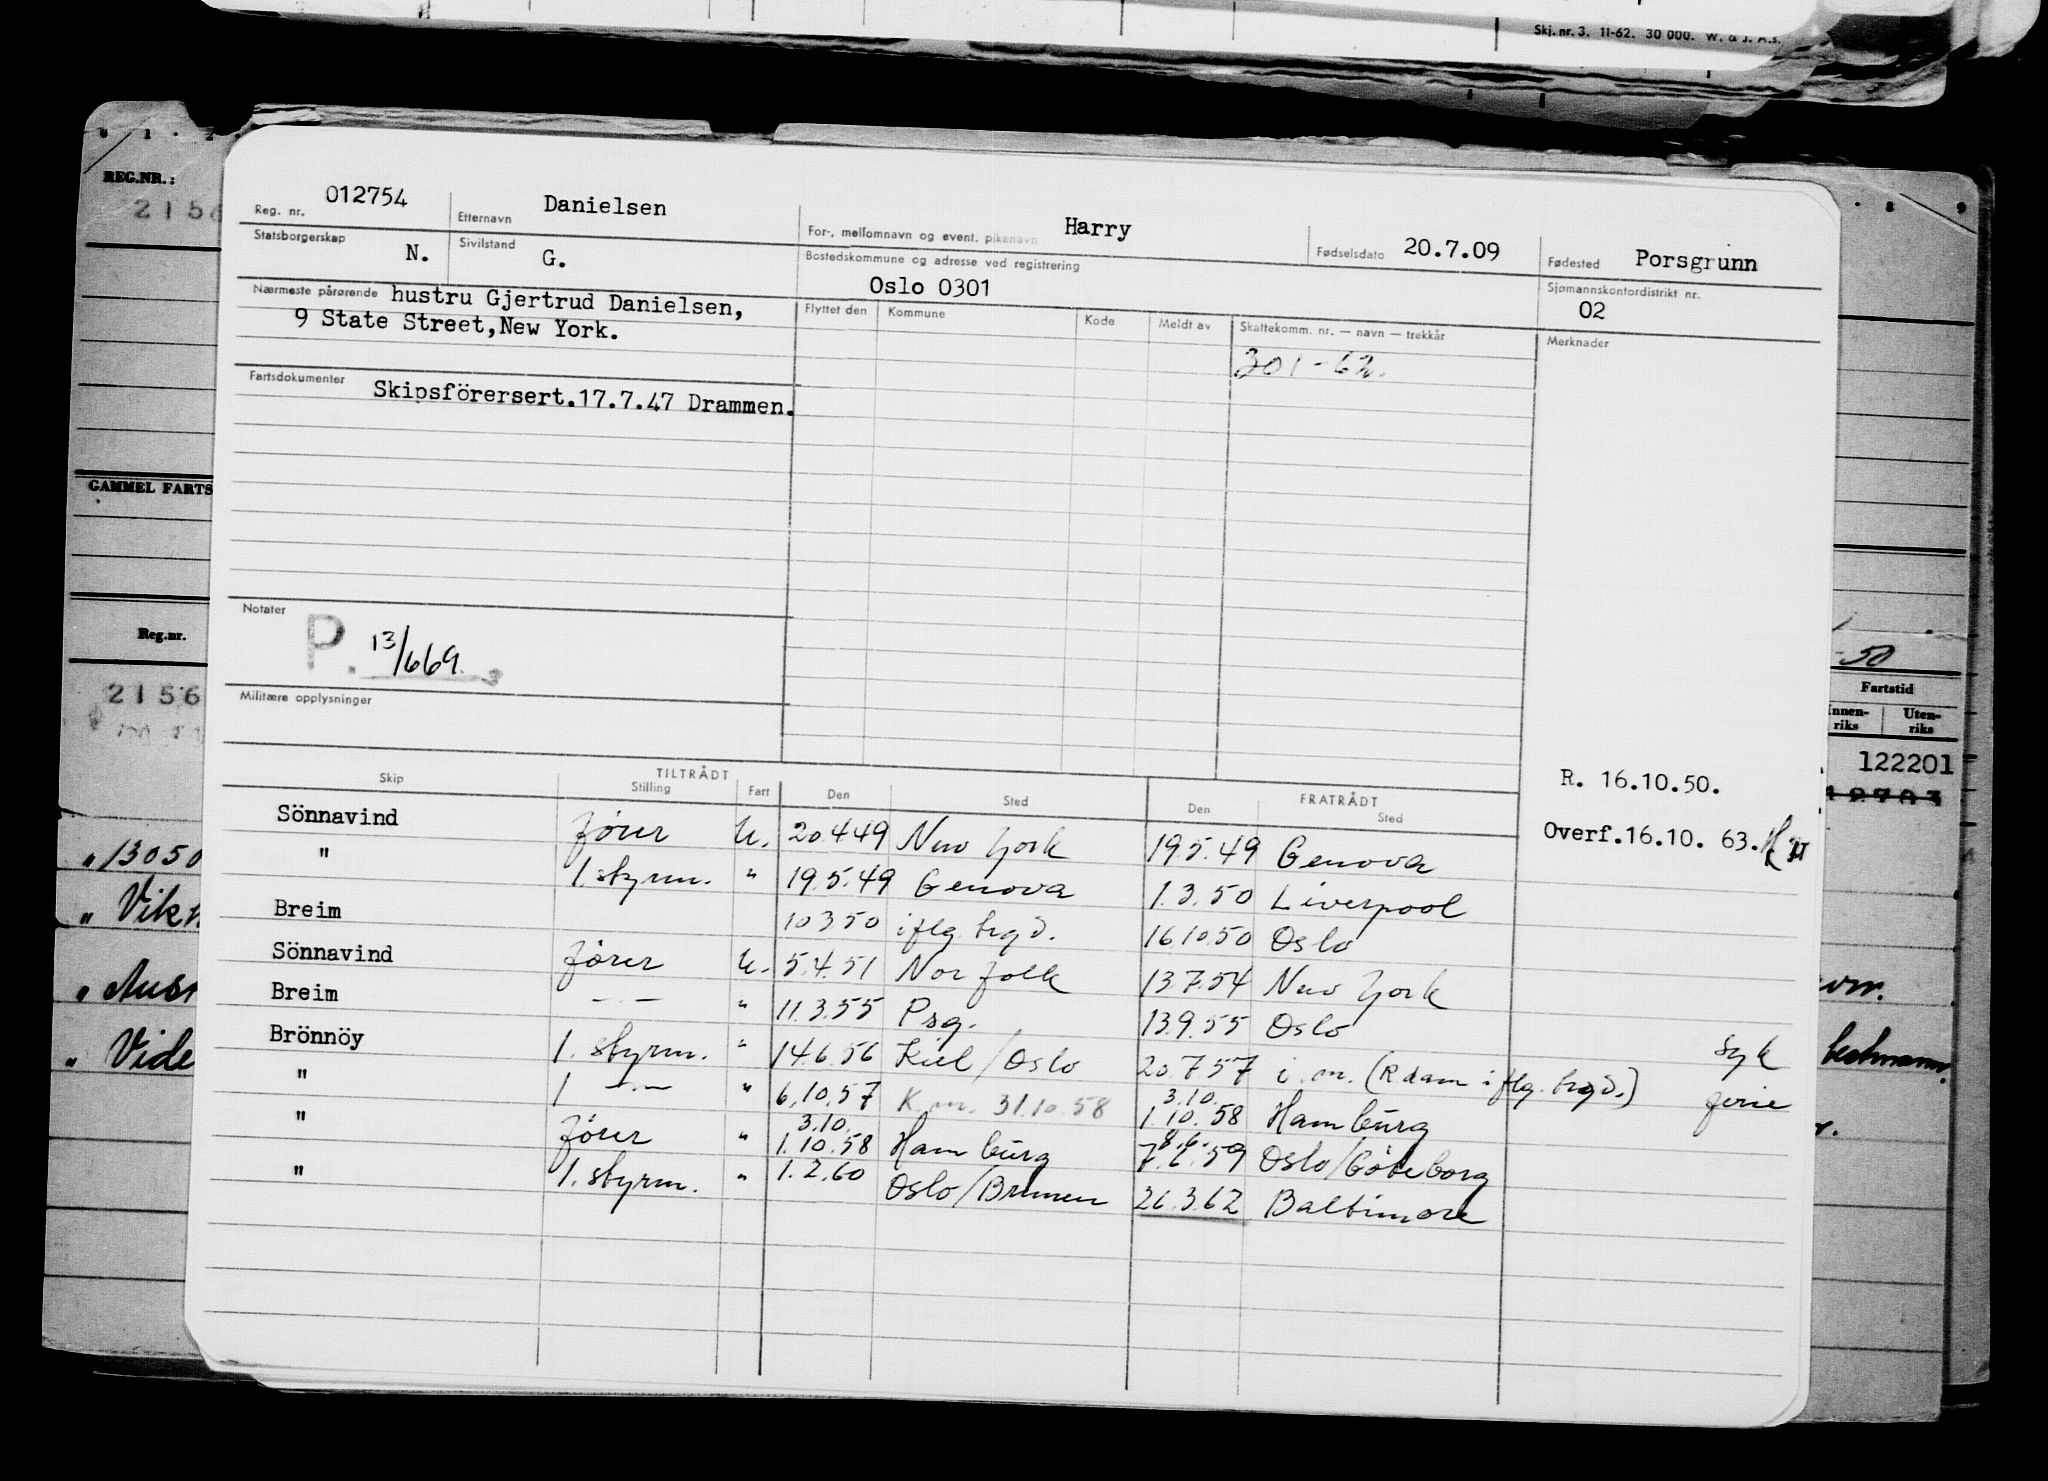 Skj. nr. 3. 11-62. 30 000. W. & J. A.s.
REG.NR.:
GAMMEL FARTS
Reg.nr.
2156
" 13050
-50
Fartstid
Innen-riks Uten-riks
122201
Reg. nr. 012754 Etternavn Danielsen For-, mellomnavn og event. pikenavn Harry Fødselsdato 20.7.09 Fødested Porsgrunn
Statsborgerskap N. Sivilstand G. Bostedskommune og adresse ved registrering Oslo 0301 Sjømannskontordistrikt nr. 02
Nærmeste pårørende hustru Gjertrud Danielsen,
9 State Street,New York.
Flyttet den Kommune Kode Meldt av Skattekomm. nr. — navn — trekkår Merknader
301-62.
Fartsdokumenter Skipsförersert.17.7.47 Drammen.
Notater
P. 13/669.
Militære opplysninger
R. 16.10.50.
Overf.16.10. 63.
TILTRÅDT FRATRÅDT
Skip Stilling Fart Den Sted Den Sted
Sönnavind fører U. 20.4.49 New York 19.5.49 Genova
" 1. styrm. " 19.5.49 Genova 1.3.50 Liverpool
Breim 10.3.50 i flg. brg d. 16.10.50 Oslo
Sönnavind fører U. 5.4.51 Norfolk 13.7.54 New York
Breim —"— " 11.3.55 Psg. 13.9.55 Oslo
Brönnöy 1. styrm. " 14.6.56 Kiel/Oslo 20.7.57 i.m. (Rdam i flg. brg d.) syk
" 1 —"— " 6.10.57 K.m. 31.10.58 3.10. 1.10.58 Hamburg ferie
" fører " 3.10. 1.10.58 Hamburg 8.6. 7.6.59 Oslo/Göteborg
" 1. styrm. " 1.2.60 Oslo/Bremen 26.3.62 Baltimore